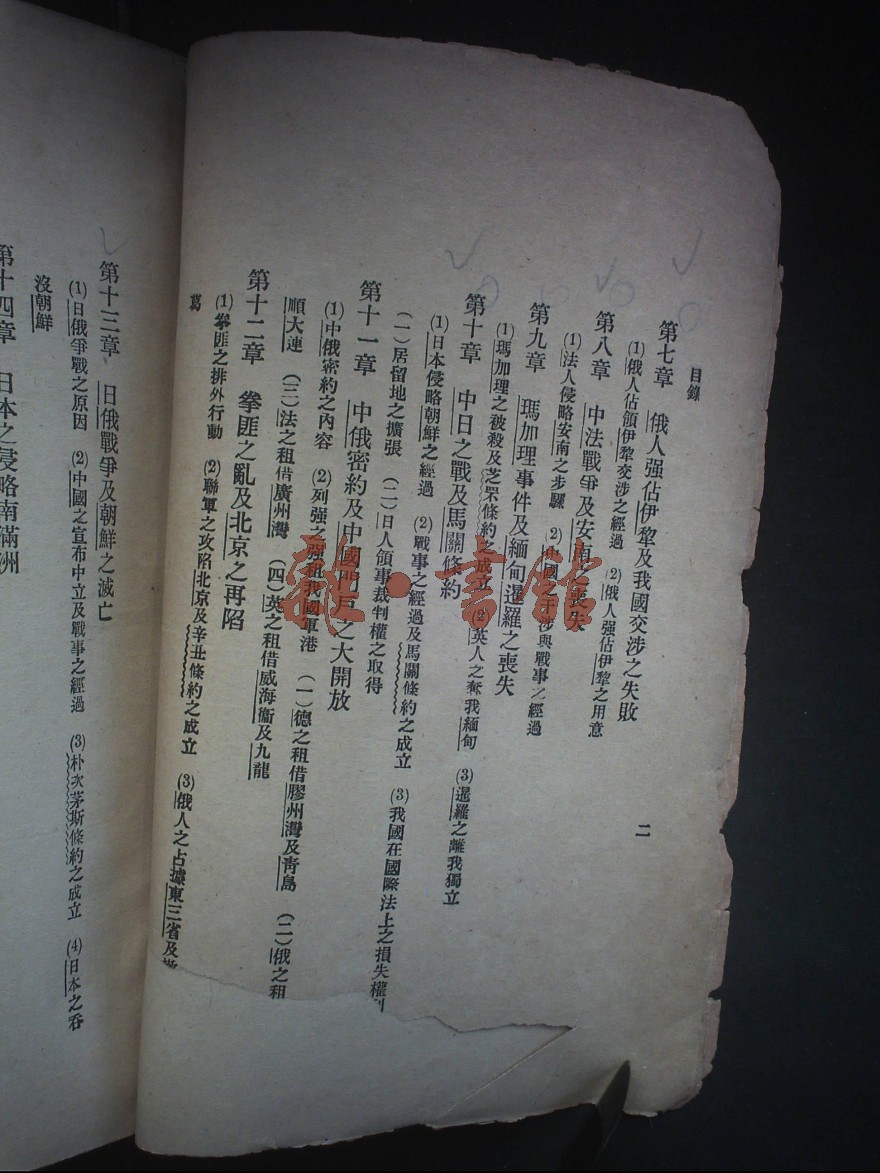 目錄
二
第七章 俄人强佔伊犂及我國交涉之失敗
(1)俄人佔領伊犂交涉之經過 (2)俄人强佔伊犂之用意
第八章 中法戰爭及安南之喪失
(1)法人侵略安南之步驟 (2)中國之干涉與戰事之經過
第九章 瑪加理事件及緬甸暹羅之喪失
(1)瑪加理之被殺及芝罘條約之成立 (2)英人之奪我緬甸 (3)暹羅之離我獨立
第十章 中日之戰及馬關條約
(1)日本侵略朝鮮之經過 (2)戰事之經過及馬關條約之成立 (3)我國在國際法上之損失權利
(一)居留地之擴張 (二)日人領事裁判權之取得
第十一章 中俄密約及中國門戶之大開放
(1)中俄密約之內容 (2)列强之强租我國軍港 (一)德之租借膠州灣及靑島 (二)俄之租
順大連 (三)法之租借廣州灣 (四)英之租借威海衞及九龍
第十二章 拳匪之亂及北京之再陷
(1)拳匪之排外行動 (2)聯軍之攻陷北京及辛丑條約之成立 (3)俄人之占據東三省及
蒍
第十三章 日俄戰爭及朝鮮之滅亡
(1)日俄爭戰之原因 (2)中國之宣布中立及戰事之經過 (3)朴次茅斯條約之成立 (4)日本之吞
沒朝鮮
第十四章 日本之侵略南滿洲
雜·書館